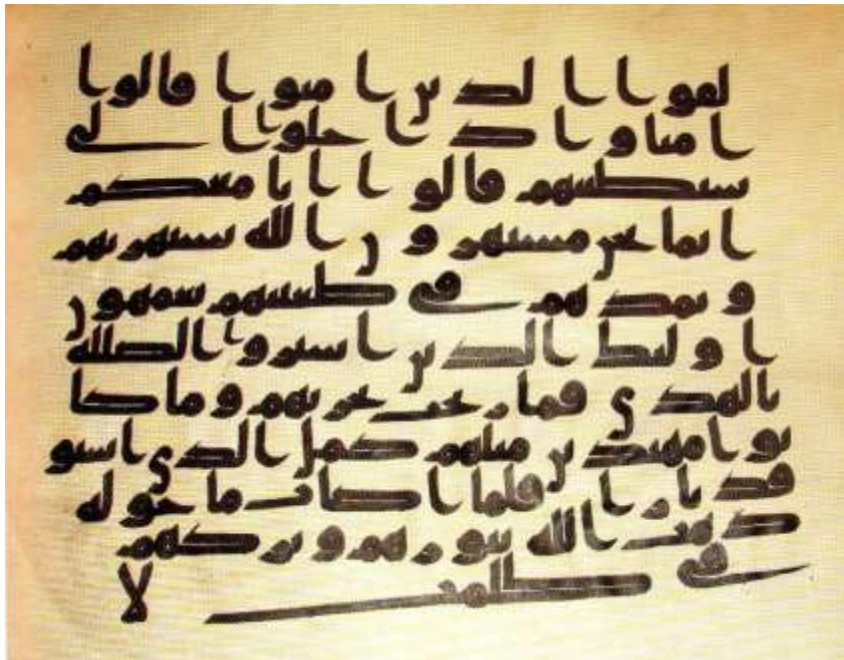 لقوا الذين امنوا قالوا
امنا واذا خلوا الى
شيطينهم قالوا انا معكم
انما نحن مستهزون الله يستهزى بهم
و يمدهم في طغينهم يعمهون
اولئك الذين اشتروا الضللة
بالهدى فما ربحت تجرتهم وما كا
نوا مهتدين مثلهم كمثل الذي استو
قد نارا فلما اضات ما حوله
ذهب الله بنورهم وتركهم
في ظلمت لا